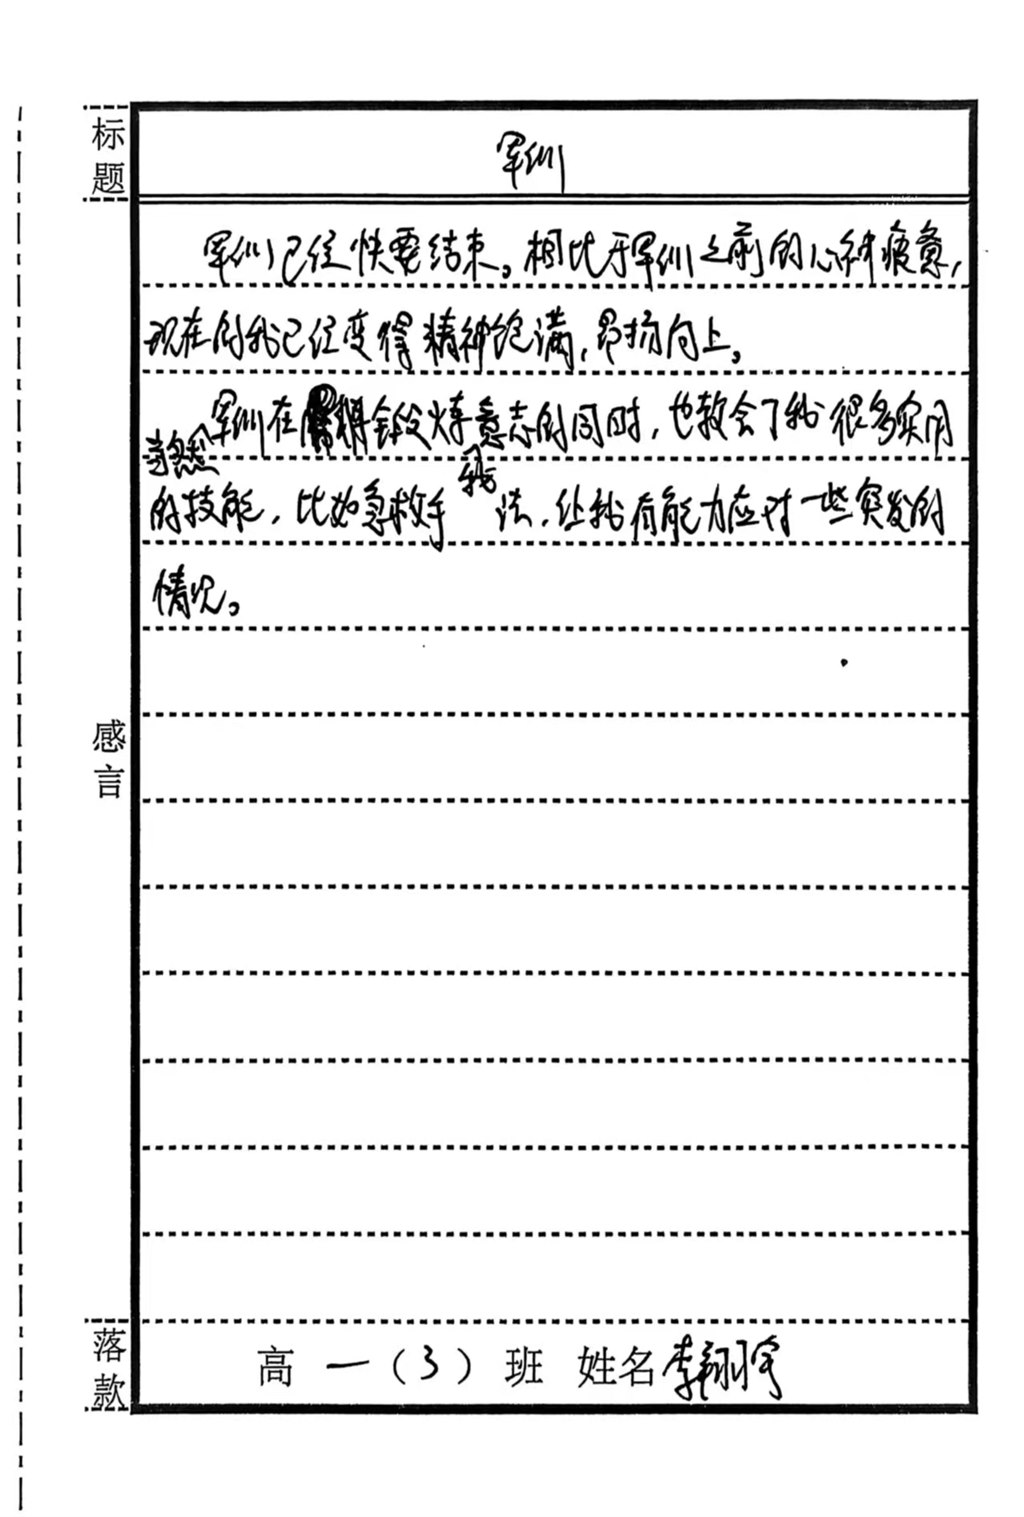 标题
军训
军训已经快要结束。相比于军训之前的心神疲惫，
现在的我已经变得精神饱满，昂扬向上。
当然军训在锻炼我意志的同时，也教会了我很多实用
的技能，比如急救手法，让我有能力应对一些突发的
情况。
感言
落款
高一（3）班 姓名李翔宇